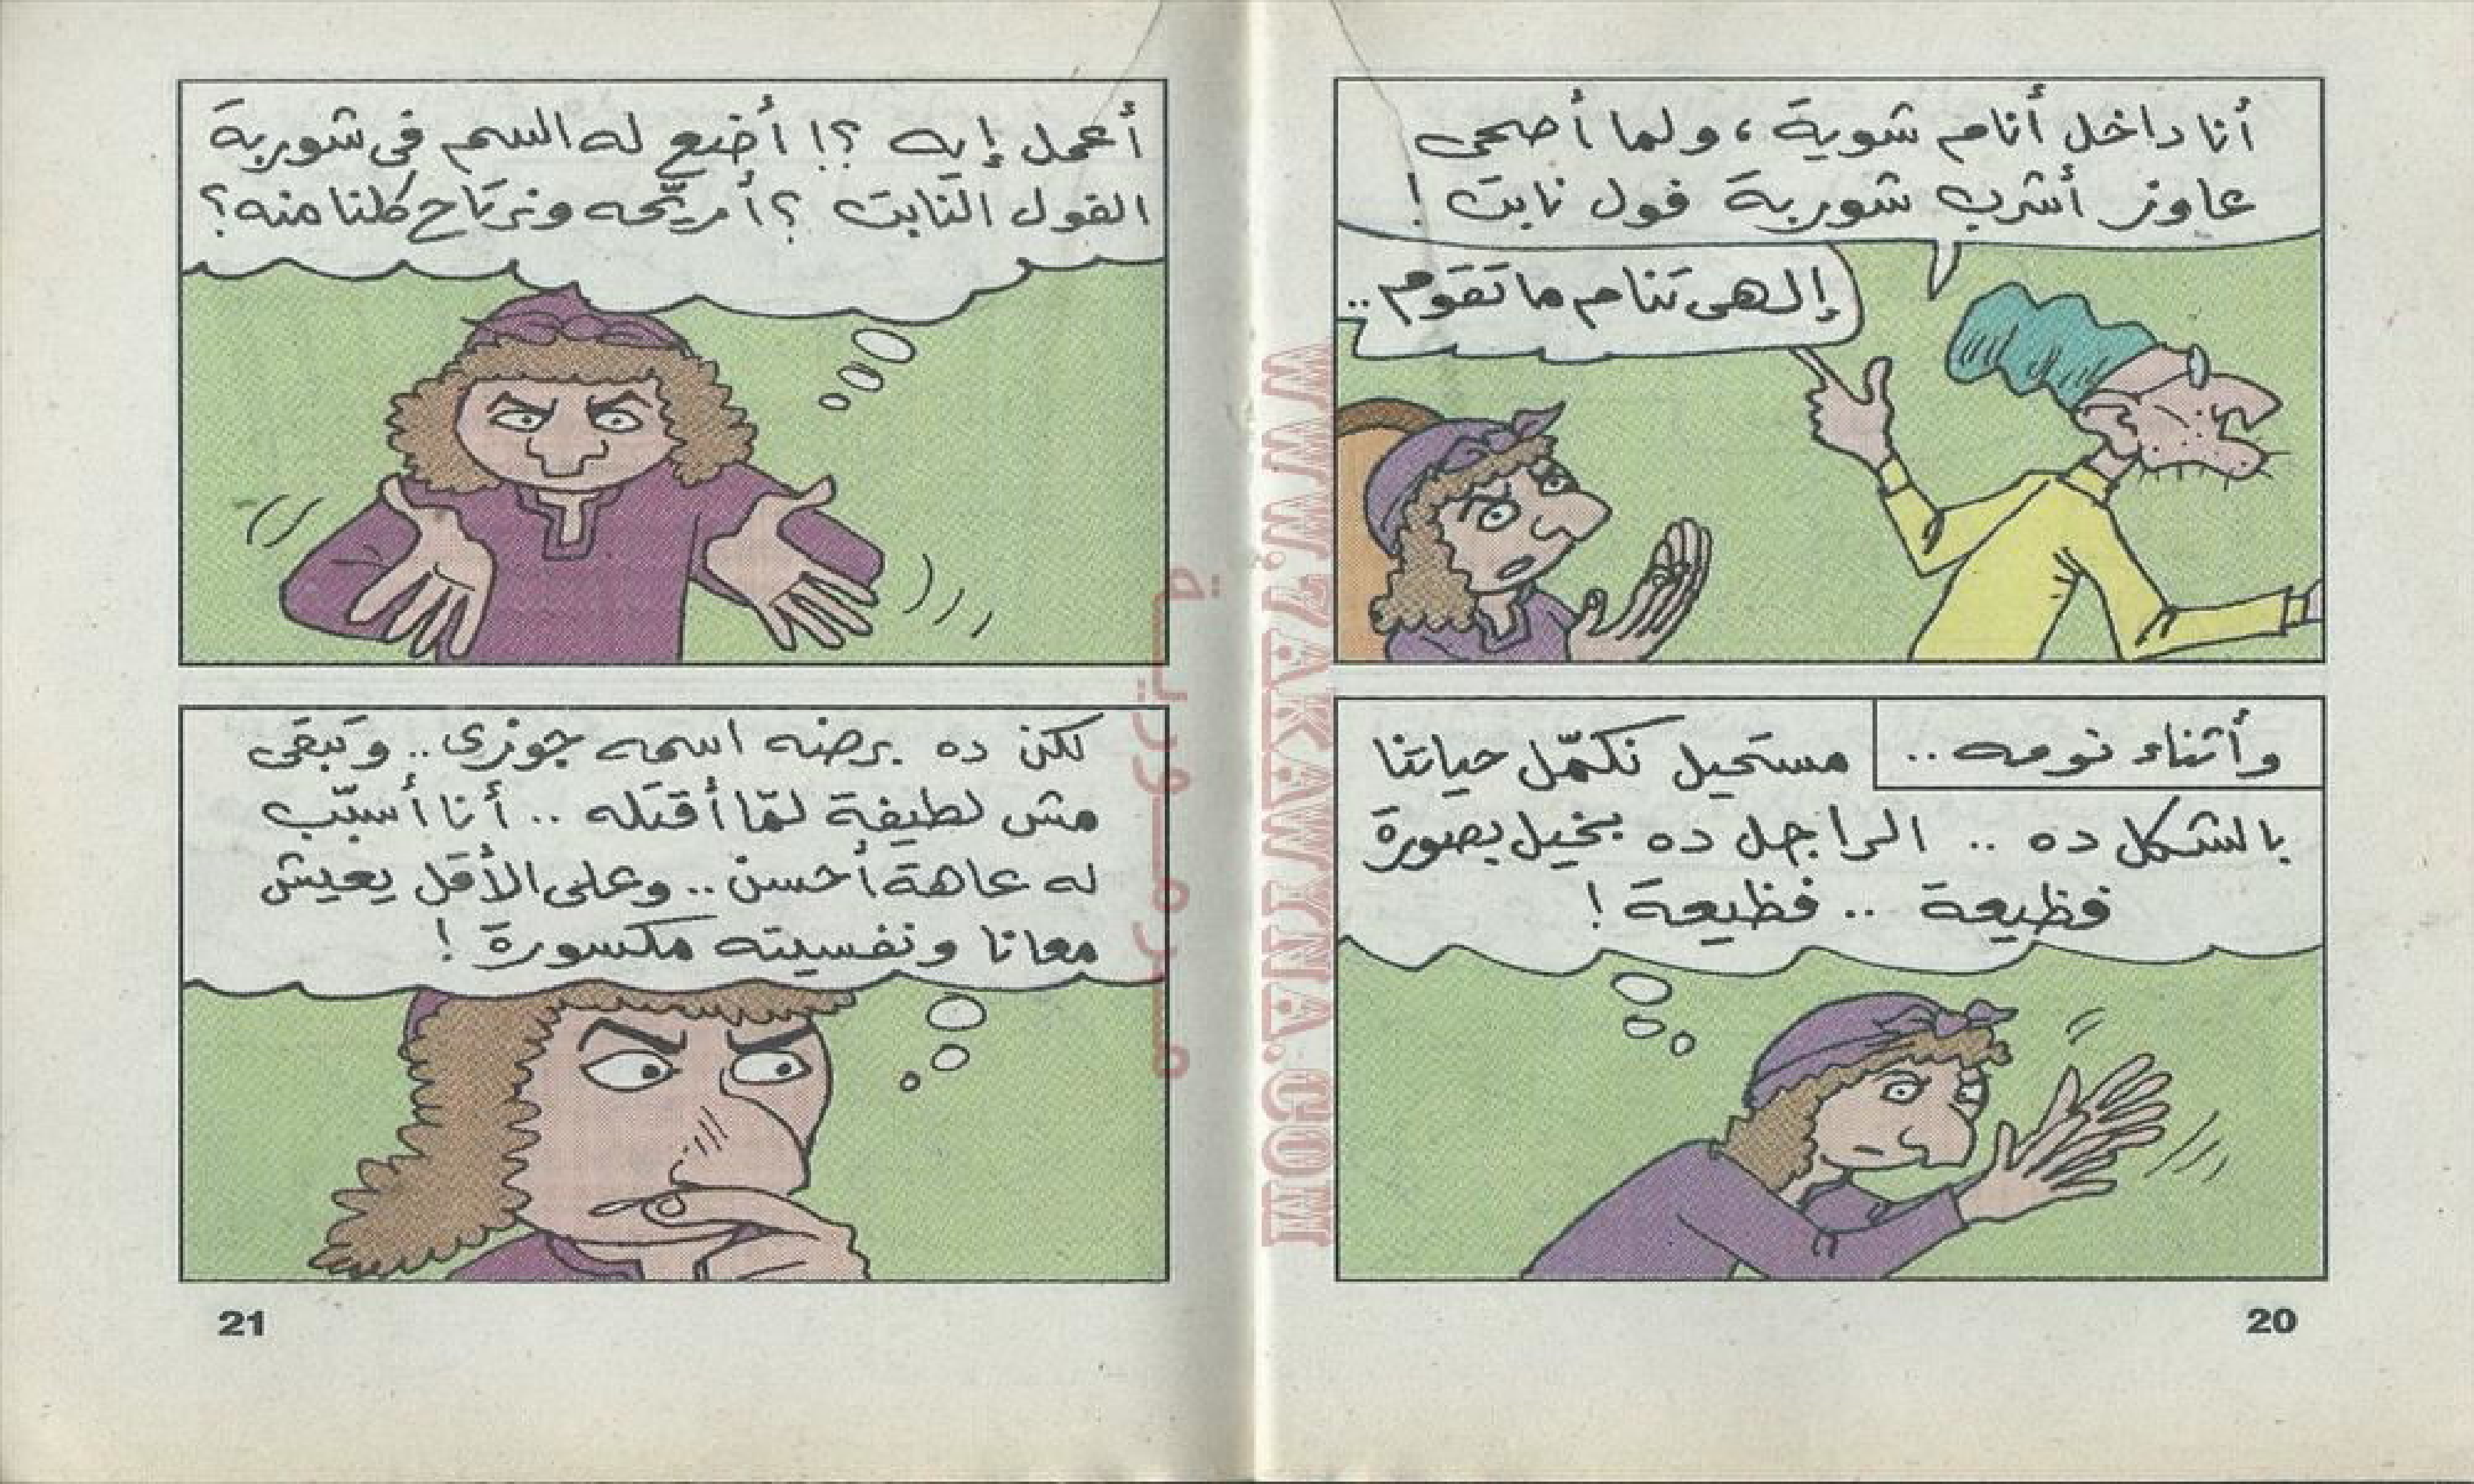 أنا داخل أنام شوية، ولما أصحى
عاوز أشرب شوربة فول نابت!
إلهى تنام ما تقوم..
وأثناء نومه..
مستحيل نكمّل حياتنا
بالشكل ده .. الراجل ده بخيل بصورة
فظيعة .. فظيعة!
20
أعمل إيه ؟! أضع له السم فى شوربة
الفول النابت ؟ أريّحه ونرتاح كلنا منه؟
لكن ده برضه اسمه جوزى.. وتبقى
مش لطيفة لمّا أقتله .. أنا أسبّب
له عاهة أحسن.. وعلى الأقل يعيش
معانا ونفسيته مكسورة!
21
WWW.7AKAWYNA.COM